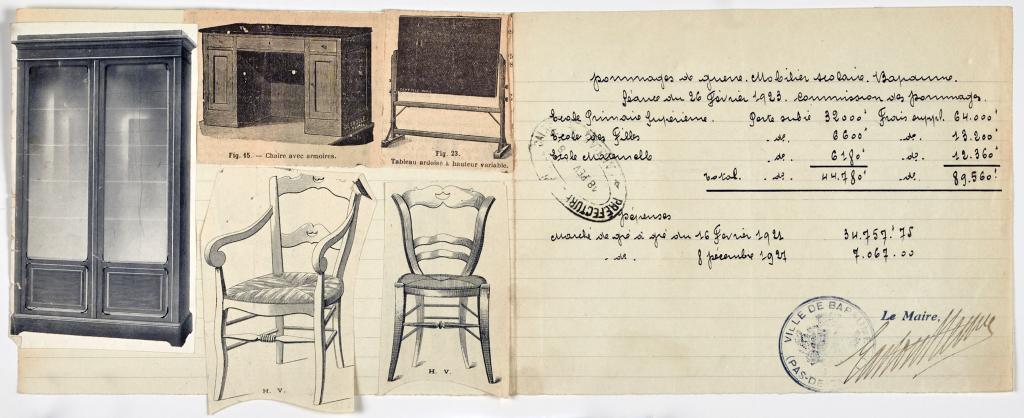 Fig. 15. — Chaire avec armoires.
Fig. 23.
Tableau ardoisé à hauteur variable.
H. V.
H. V.
Dommages de guerre. Mobilier scolaire. Bapaume.
Séance du 26 Février 1923. Commission des Dommages.
Ecole Primaire Supérieure. Perte subie 32000f Frais suppl. 64.000f
Ecole des Filles . d° . 6600f . d° . 13.200f
Ecole Maternelle . d° . 6180f . d° . 12.360f
Total . d° . 44.780f . d° . 89.560f
PREFECTURE
Dépenses
Marché de gré à gré du 16 Février 1921 34.757f 75
. d° . 8 Décembre 1927 7.067.00
Le Maire,
VILLE DE
(PAS-DE-